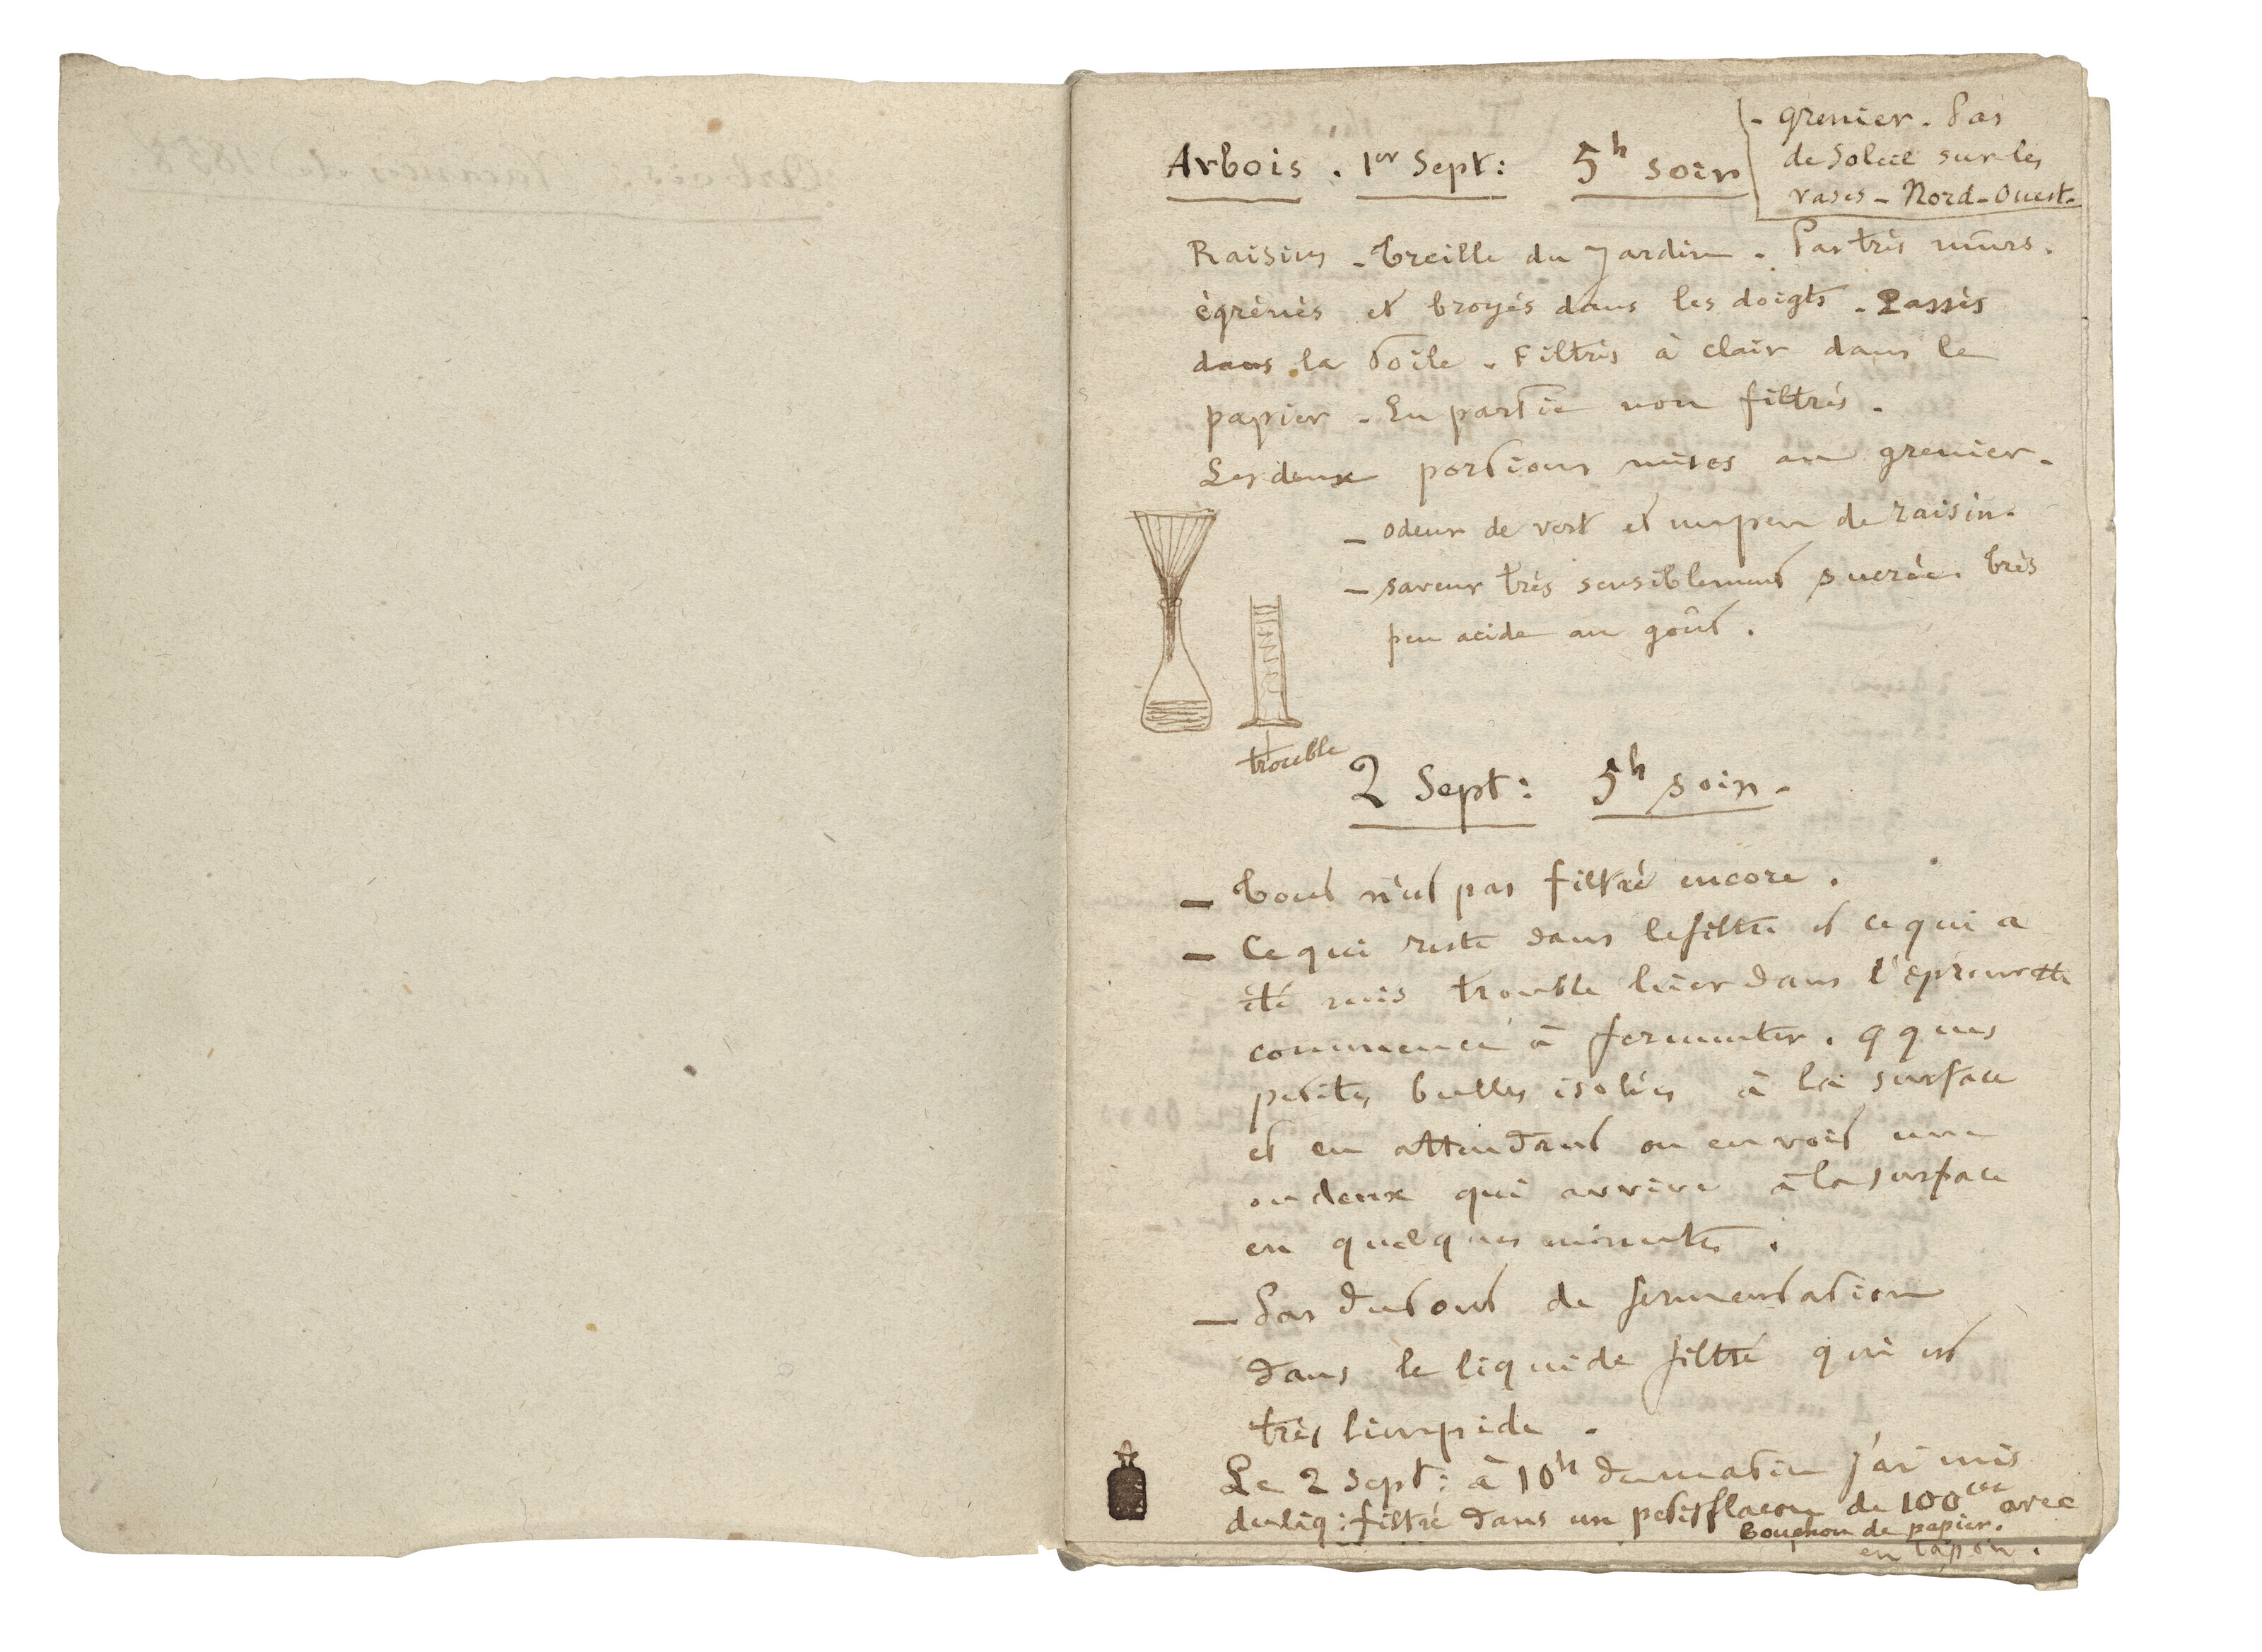 Arbois . 1er Sept : 5h soir
- grenier. Pas
de soleil sur les
vases - Nord-Ouest.
Raisins - treille du jardin . Pas très mûrs.
égrénés et broyés dans les doigts - Passés
dans la toile . Filtrés à clair dans le
papier - En partie non filtrés .
Les deux portions mises au grenier -
- odeur de vert et un peu de raisin.
- saveur très sensiblement sucrée. très
peu acide au goût .
trouble
2 Sept : 5h soir -
- Tout n'est pas filtré encore .
- Ce qui reste dans le filtre et ce qui a
été mis trouble hier dans l'éprouvette
commence à fermenter . qques
petites bulles isolées à la surface
et en attendant on en voit une
ou deux qui arrive à la surface
en quelques minutes .
- Pas du tout de fermentation
dans le liquide filtré qui est
très limpide .
Le 2 Sept : à 10h du matin j'ai mis
du liq : filtré dans un petit flacon de 100cc avec
Bouchon de papier.
en tapon .